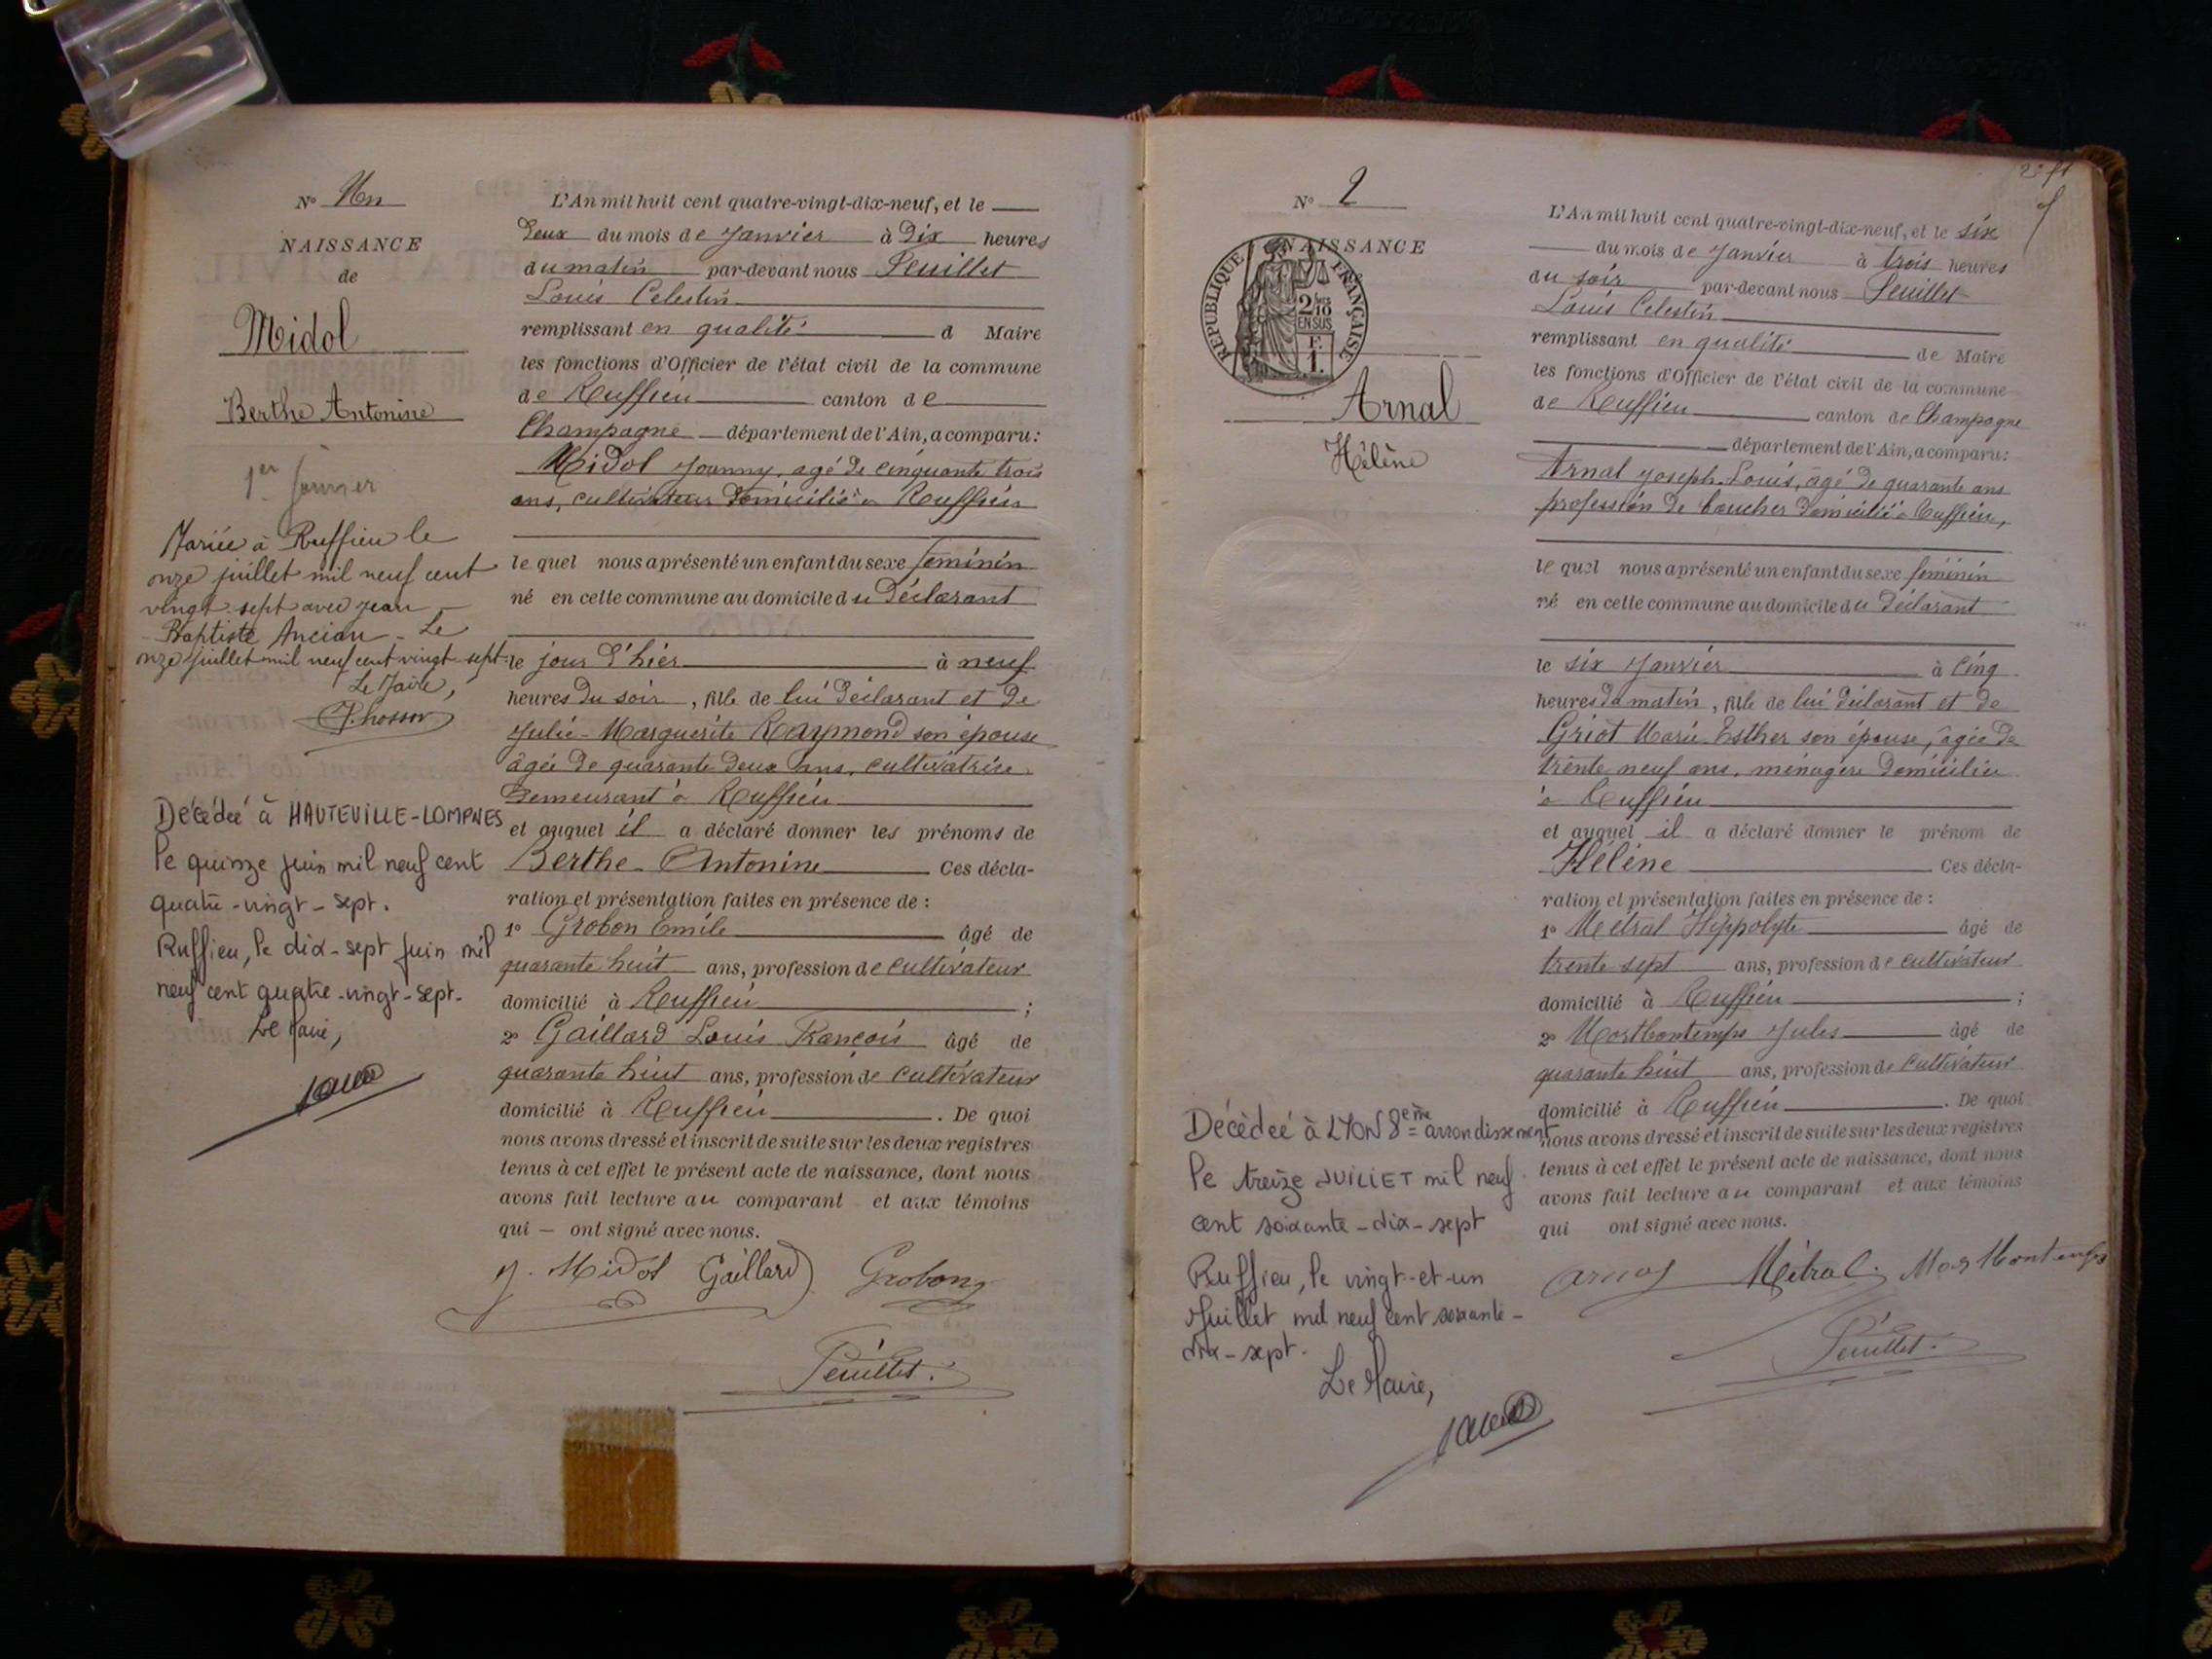 N° Un
NAISSANCE
de
Midol
Berthe Antonine
1er Janvier
Mariée à Ruffieu le
onze juillet mil neuf cent
vingt sept avec Jean
Baptiste Ancian - Le
onze juillet mil neuf cent vingt sept
Le Maire,
Décédée à HAUTEVILLE-LOMPNES
le quinze juin mil neuf cent
quatre-vingt-sept.
Ruffieu, le dix-sept juin mil
neuf cent quatre-vingt-sept.
Le Maire,
L'An mil huit cent quatre-vingt-dix-neuf, et le
deux du mois de Janvier à Dix heures
du matin par-devant nous Peuillet
Louis Celestin
remplissant en qualité d Maire
les fonctions d'Officier de l'état civil de la commune
de Ruffieu canton de
Champagne département de l'Ain, a comparu :
Midol Joanny, agé de cinquante trois
ans, cultivateur domicilié à Ruffieu
le quel nous a présenté un enfant du sexe feminin
né en cette commune au domicile du Déclarant
le jour d'hier à neuf
heures du soir, fille de lui déclarant et de
Julie-Marguerite Raymond son épouse
âgée de quarante deux ans, cultivatrice
demeurant à Ruffieu
et auquel il a déclaré donner les prénoms de
Berthe-Antonine Ces décla-
ration et présentation faites en présence de :
1° Grobon Emile âgé de
quarante huit ans, profession de cultivateur
domicilié à Ruffieu ;
2° Gaillard Louis François âgé de
quarante huit ans, profession de cultivateur
domicilié à Ruffieu . De quoi
nous avons dressé et inscrit de suite sur les deux registres
tenus à cet effet le présent acte de naissance, dont nous
avons fait lecture au comparant et aux témoins
qui — ont signé avec nous.
J. Midol Gaillard Grobon
Peuillet.
N° 2
NAISSANCE
RÉPUBLIQUE FRANÇAISE
2/10
EN SUS
F.
1.
Arnal
Hélène
Décédée à LYON 8ème arrondissement
le treize JUILLET mil neuf
cent soixante-dix-sept
Ruffieu, le vingt-et-un
Juillet mil neuf cent soixante-
dix-sept.
Le Maire,
L'An mil huit cent quatre-vingt-dix-neuf, et le six
du mois de Janvier à trois heures
du soir par-devant nous Peuillet
Louis Celestin
remplissant en qualité de Maire
les fonctions d'Officier de l'état civil de la commune
de Ruffieu canton de Champagne
département de l'Ain, a comparu :
Arnal Joseph-Louis, âgé de quarante ans
profession de boucher domicilié à Ruffieu,
le quel nous a présenté un enfant du sexe feminin
né en cette commune au domicile du Déclarant
le six Janvier à cinq
heures du matin, fille de lui déclarant et de
Griot Marie Esther son épouse, âgée de
trente neuf ans, ménagère domiciliée
à Ruffieu
et auquel il a déclaré donner le prénom de
Hélène Ces décla-
ration et présentation faites en présence de :
1° Métral Hippolyte âgé de
trente sept ans, profession de cultivateur
domicilié à Ruffieu ;
2° Jules âgé de
quarante huit ans, profession de cultivateur
domicilié à Ruffieu . De quoi
nous avons dressé et inscrit de suite sur les deux registres
tenus à cet effet le présent acte de naissance, dont nous
avons fait lecture au comparant et aux témoins
qui ont signé avec nous.
Arnal Métral
Peuillet.